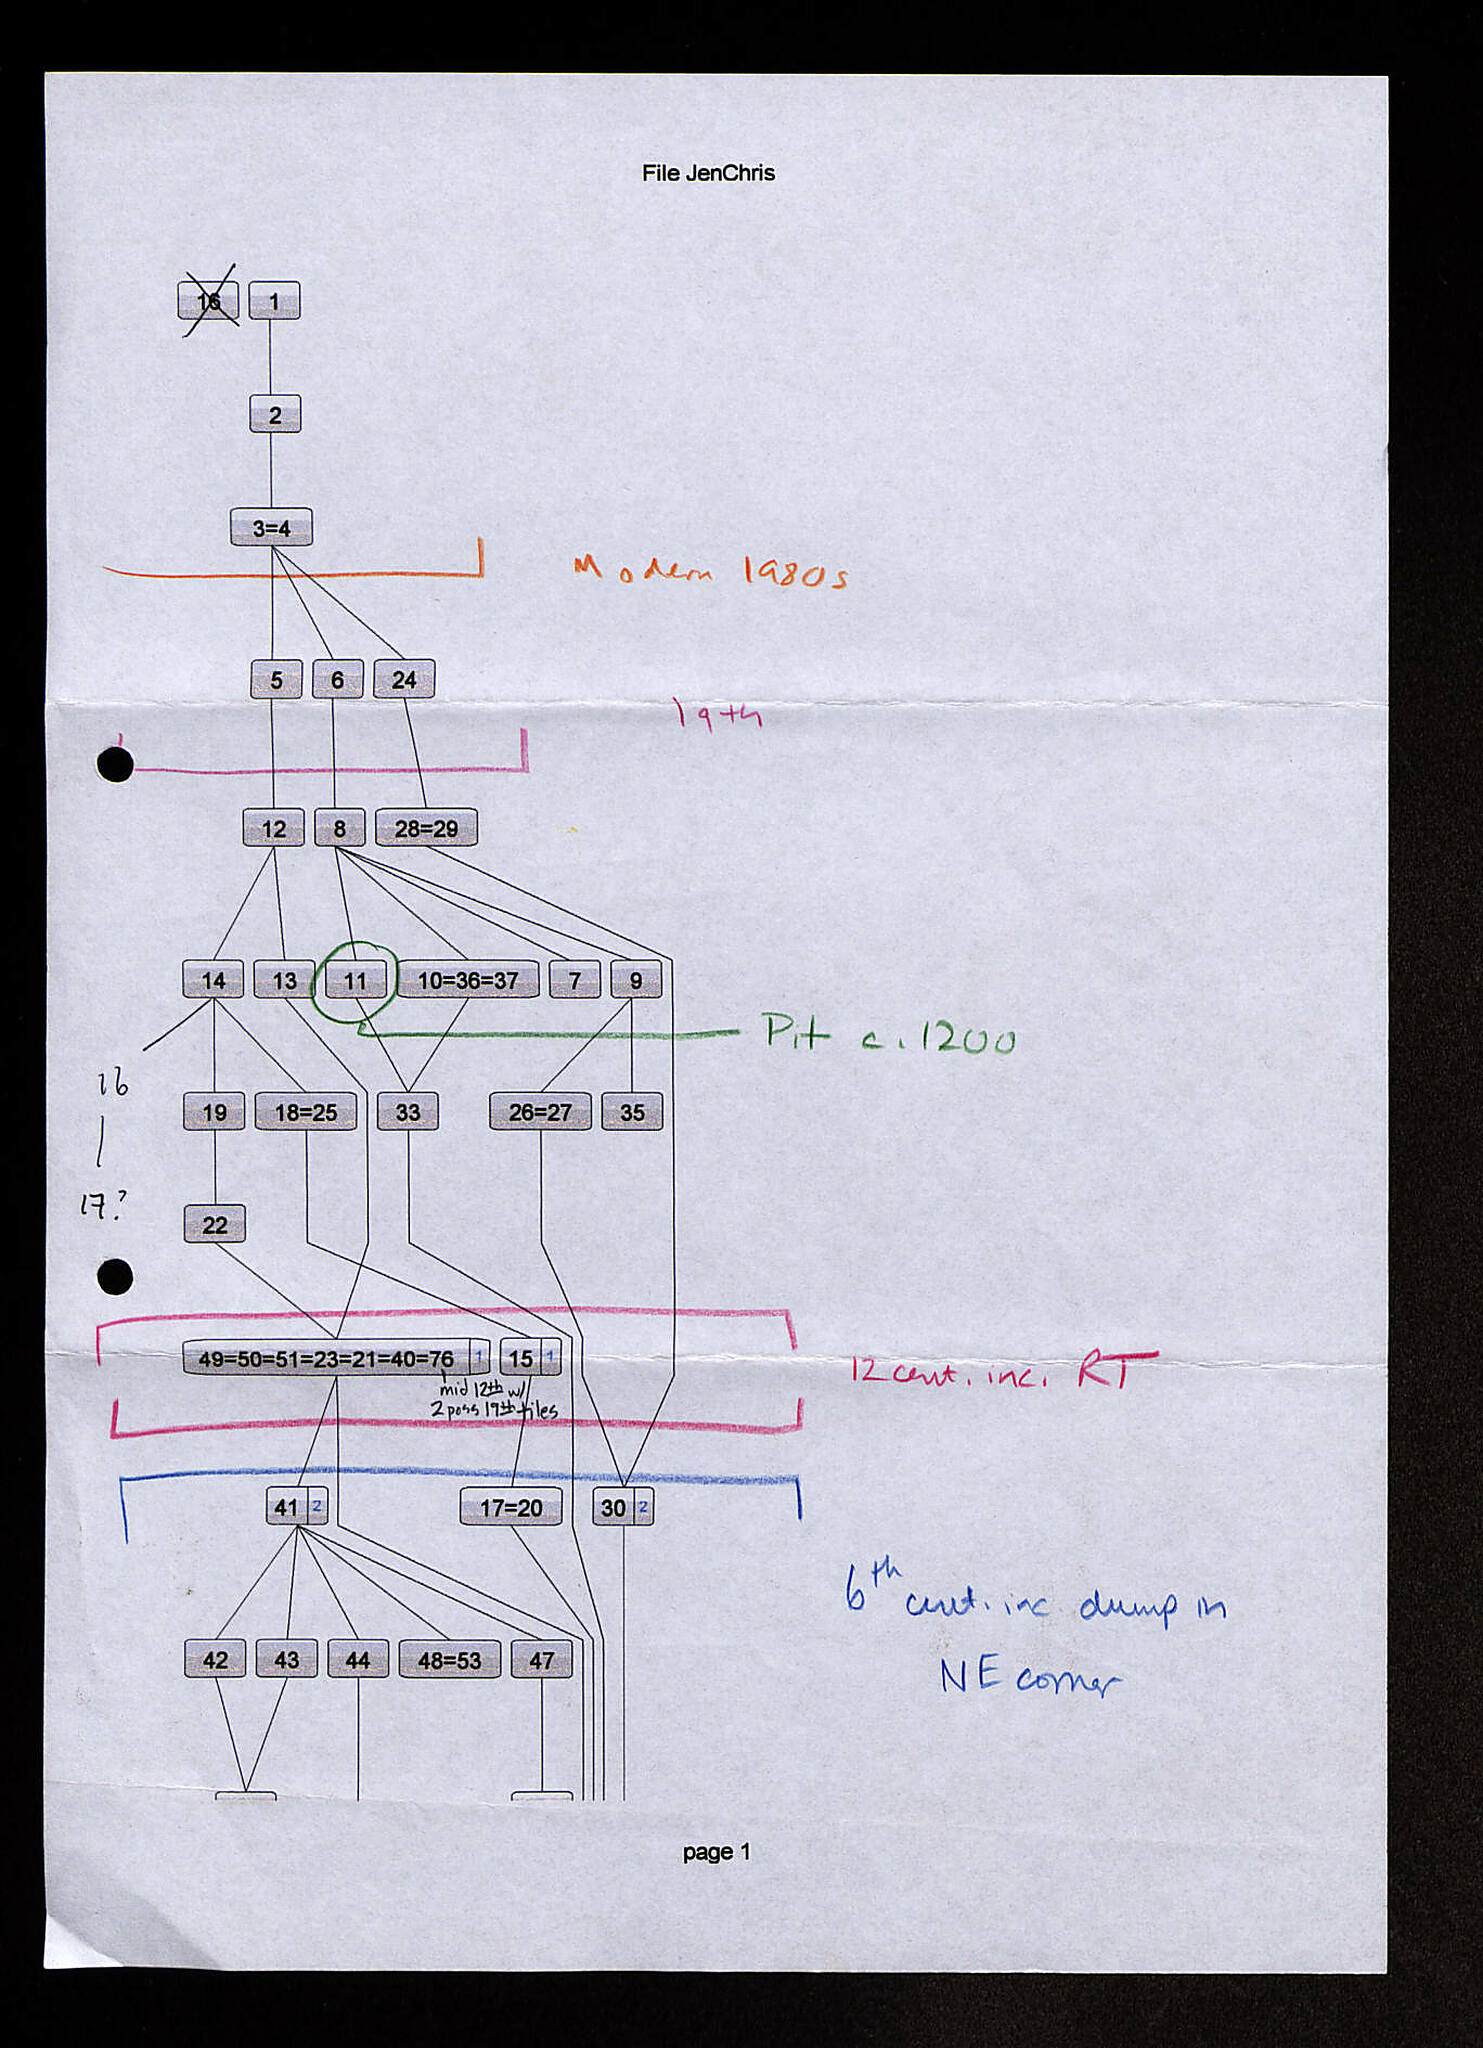 File JenChris
16 1
2
3=4
Modern 1980s
5 6 24
19th
12 8 28=29
14 13 11 10=36=37 7 9
Pit c. 1200
16
19 18=25 33 26=27 35
17?
22
49=50=51=23=21=40=76 1 15 1
12 cent. inc. RT
mid 12th w/
2 poss 19th tiles
41 2 17=20 30 2
6th cent. inc. dump in
NE corner
42 43 44 48=53 47
page 1